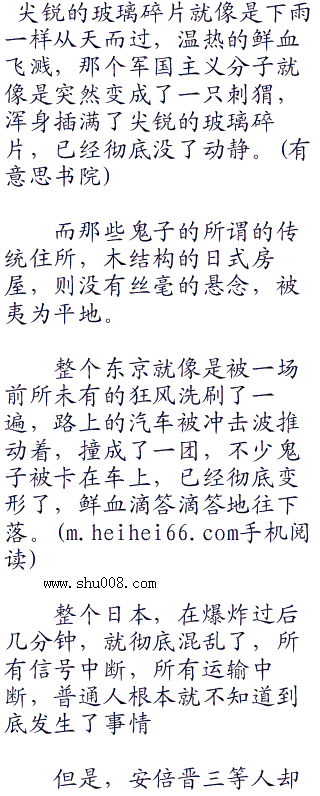 尖锐的玻璃碎片就像是下雨
一样从天而过，温热的鲜血
飞溅，那个军国主义分子就
像是突然变成了一只刺猬，
浑身插满了尖锐的玻璃碎
片，已经彻底没了动静。(有
意思书院)
而那些鬼子的所谓的传
统住所，木结构的日式房
屋，则没有丝毫的悬念，被
夷为平地。
整个东京就像是被一场
前所未有的狂风洗刷了一
遍，路上的汽车被冲击波推
动着，撞成了一团，不少鬼
子被卡在车上，已经彻底变
形了，鲜血滴答滴答地往下
落。(m.heihei66.com手机阅
读)
www.shu008.com
整个日本，在爆炸过后
几分钟，就彻底混乱了，所
有信号中断，所有运输中
断，普通人根本就不知道到
底发生了事情
但是，安倍晋三等人却